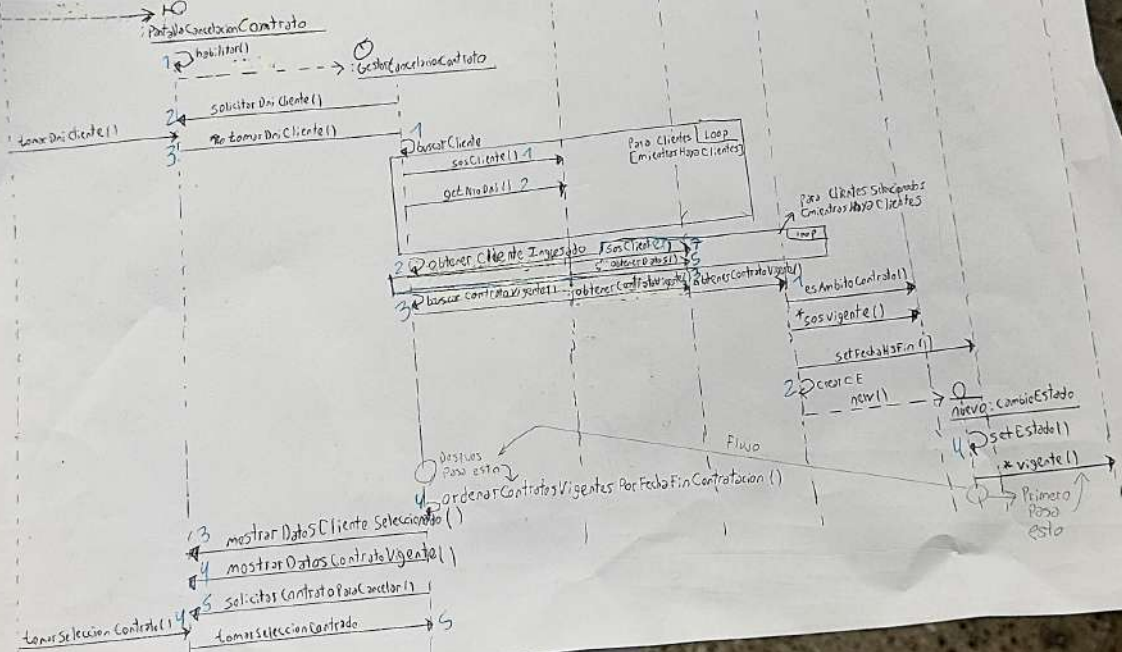 :PantallaCancelacionContrato
1 habilitar()
:GestorCancelacionContrato
2 solicitarDniCliente()
tomarDniCliente()
3 tomarDniCliente()
1
buscarCliente
Para Clientes Loop
[mientras Haya Clientes]
sosCliente() 1
getNroDni() 2
Para Clientes Seleccionados
[mientras Haya Clientes
Loop
2 obtener Cliente Ingresado sosCliente()
obtenerDatos() 5
3 buscar ContratoVigente() :obtenerContratoVigente() obtenerContratoVigente()
1 esAmbitoContrato()
*sosVigente()
setFechaHsFin()
2 crearCE
new()
nuevo:CambioEstado
4 setEstado()
* vigente()
Flujo
Despues
Pasa esto
Primero
Pasa
esto
4 ordenarContratosVigentes PorFechaFinContratacion()
3 mostrarDatosCliente Seleccionado()
4 mostrarDatosContratoVigente()
5 solicitarContratoParaCancelar()
tomarSeleccionContrato() 4
tomarSeleccionContrado 5